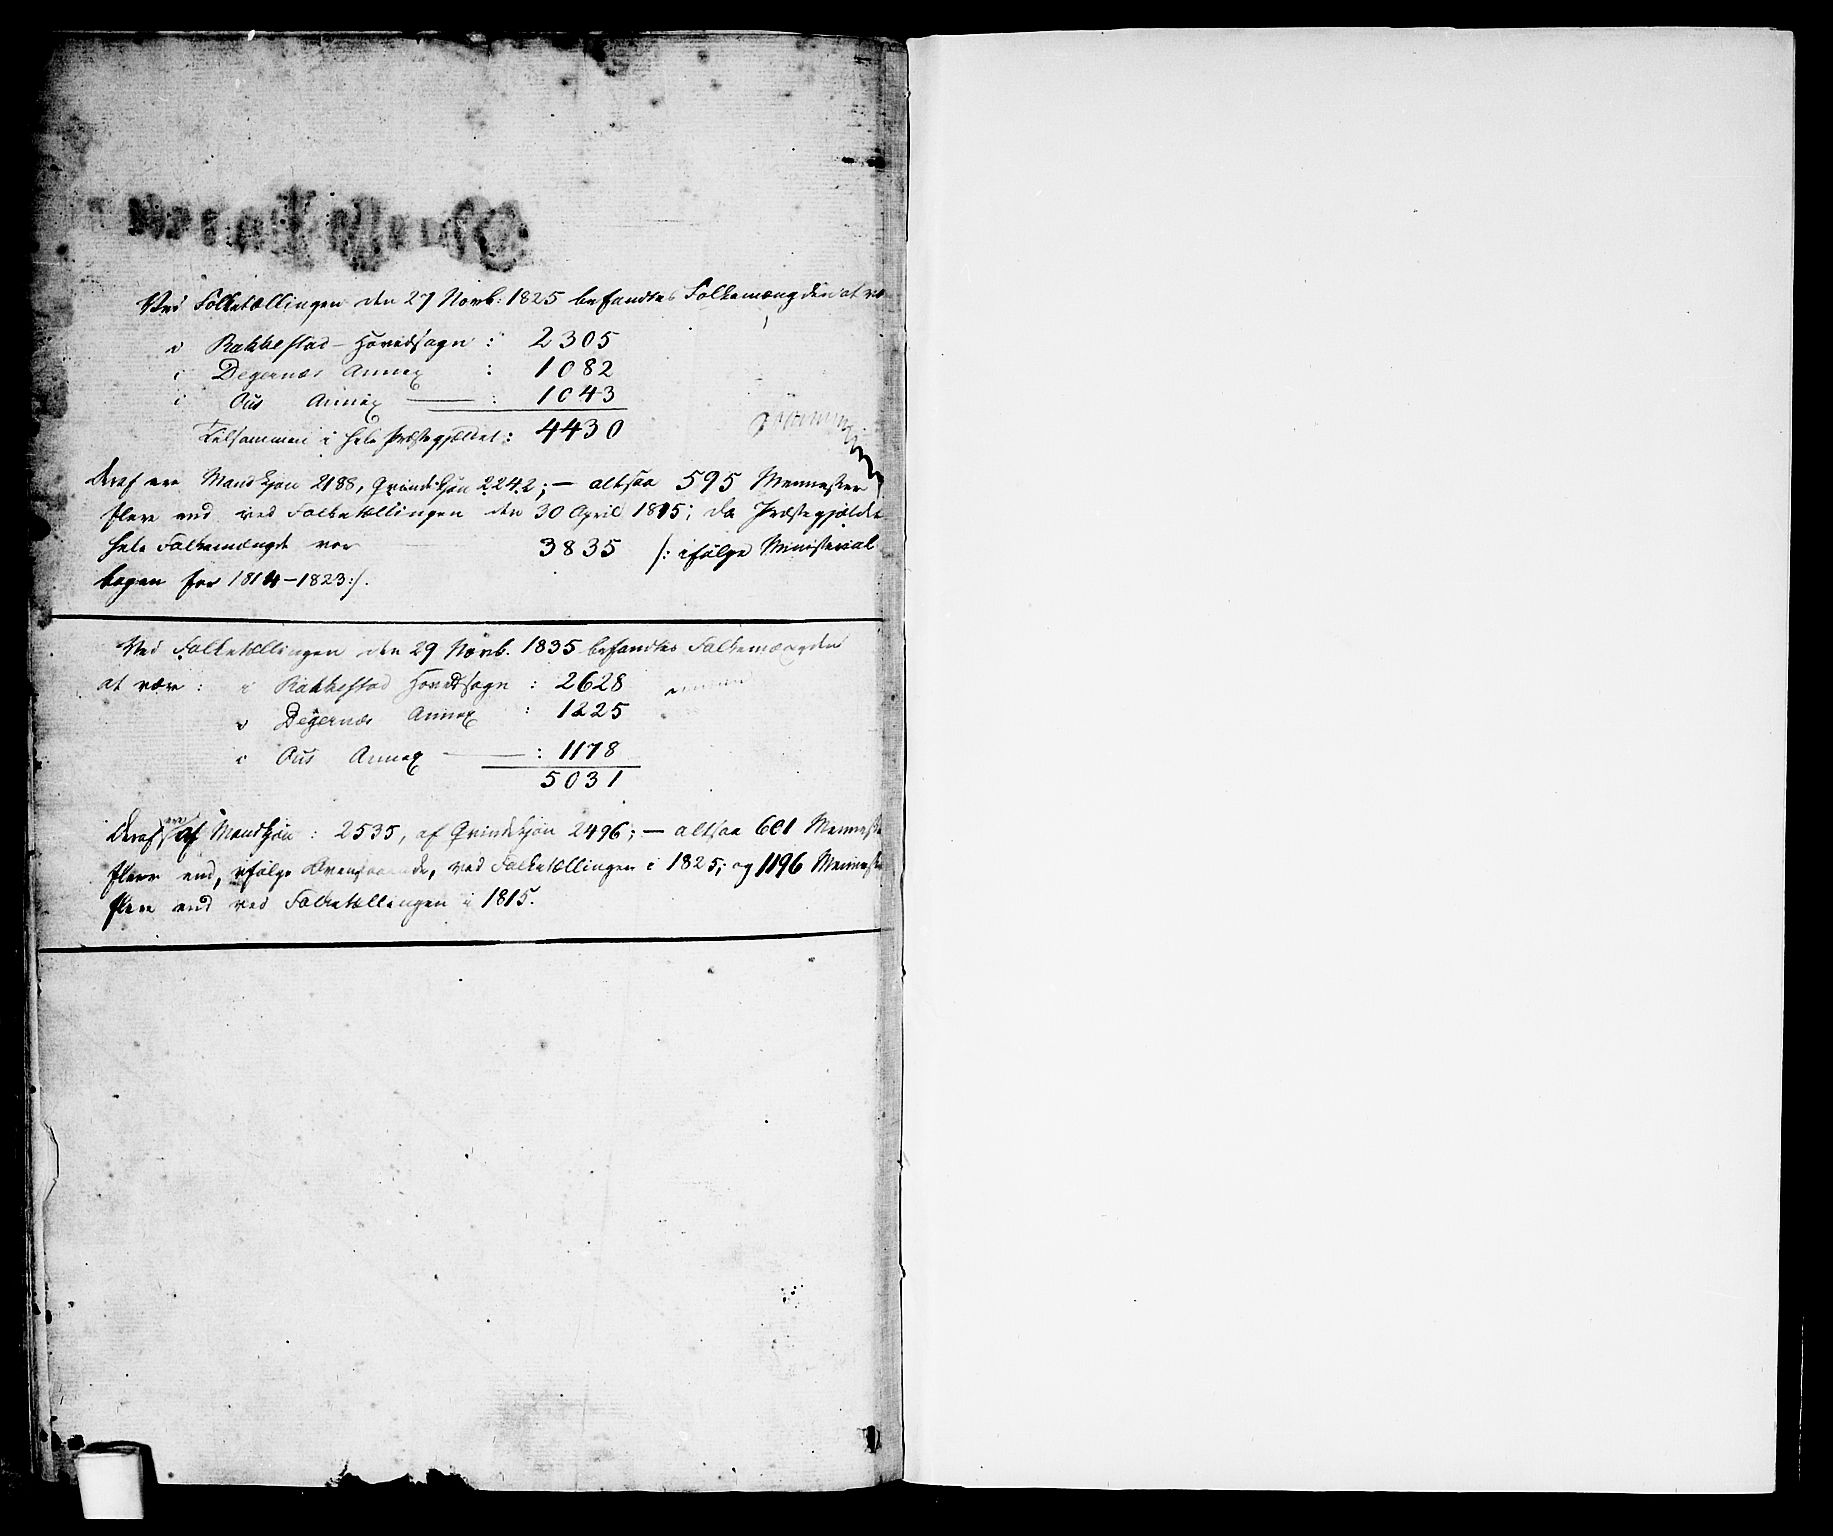 Ved Folketællingen den 27 Novb: 1825 befandtes Folkemængden at væ
i Rakkestad Hovedsogn : 2305
i Degernæs Annex : 1082
i Øus Annex — : 1043
Tilsammen i hele Præstegjældet: 4430
Deraf ere Mandkjøn 2188, Qvindekjøn 2242; — altsaa 595 Mennesker
flere end ved Folketællingen den 30 April 1815; da Præstegjældets
hele Folkemængde var 3835 /: ifølge Ministerial
bogen for 1814–1823:/.
Ved Folketællingen den 29 Novb. 1835 befandtes Folkemængden
at være : i Rakkestad Hovedsogn : 2628
i Degernæs Annex : 1225
i Øus Annex — : 1178
5031
Deraf ere af Mandkjøn : 2535, af Qvindekjøn 2496; — altsaa 601 Menneske
flere end, ifølge Ovenstaaende, ved Folketællingen i 1825; og 1196 Menneske
flere end ved Folketællingen i 1815.